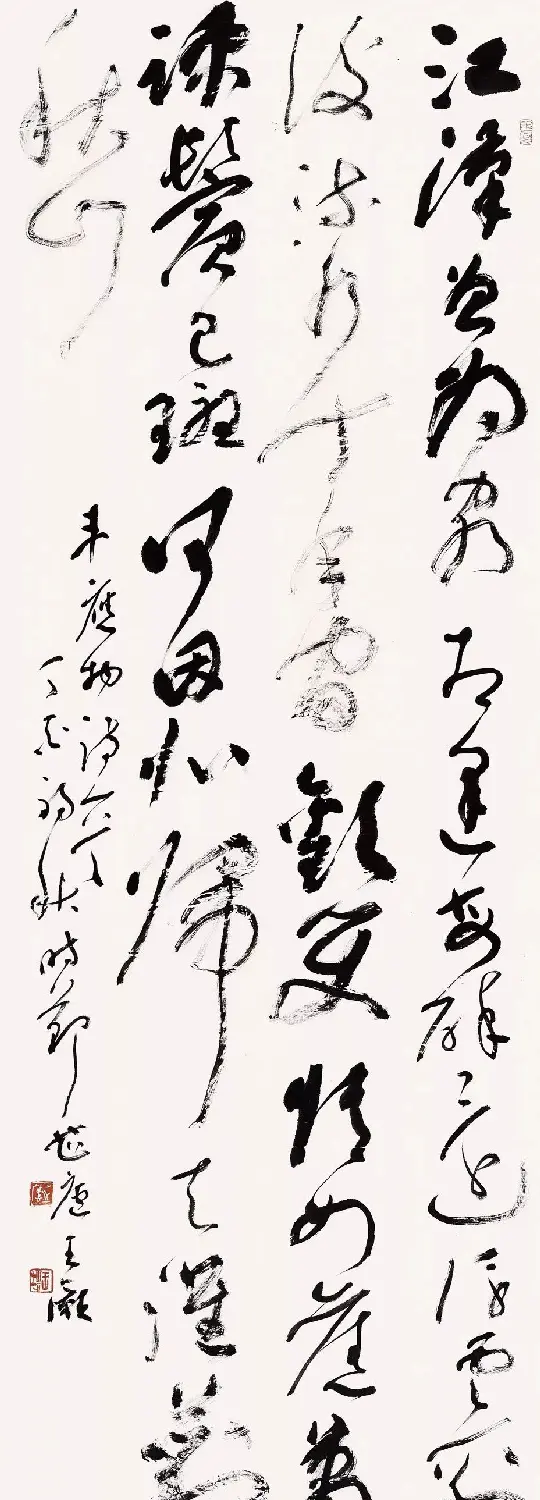 江漢曾為客相逢每醉還浮雲一别
後流水十年間歡笑情如舊蕭
疎鬢已斑何因北歸去淮上對
秋山
韋應物詩
秋時節 廬王